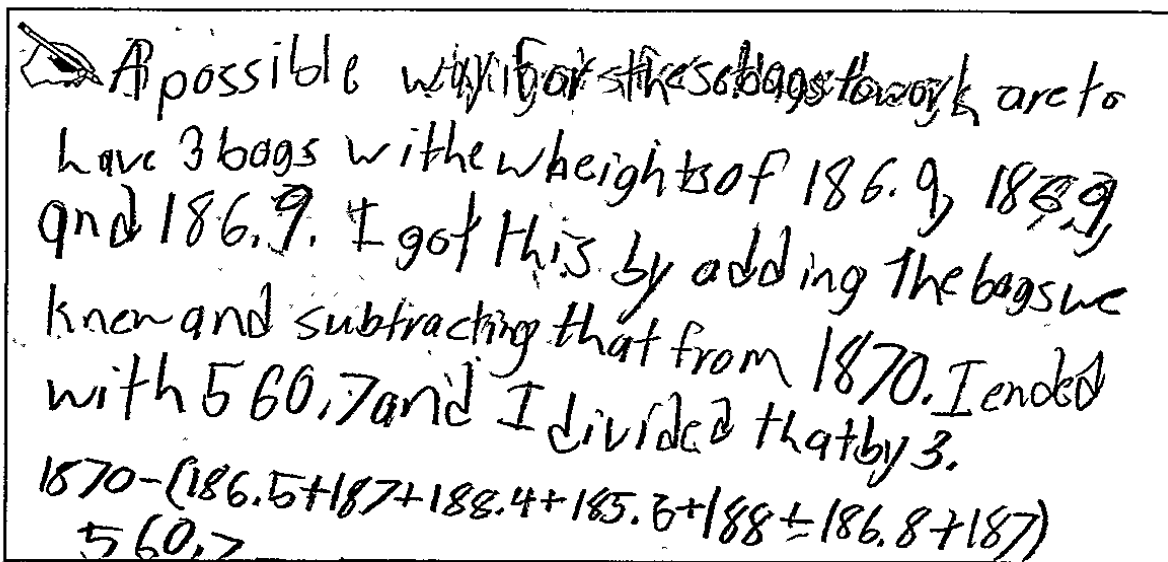 A possible way for these bags to work are to
have 3 bags withe wheights of 186.9, 186.9,
and 186.9. I got this by adding the bags we
knew and subtracting that from 1870. I ended
with 560.7 and I divided that by 3.
1870-(186.5+187+188.4+185.6+188+186.8+187)
560.7